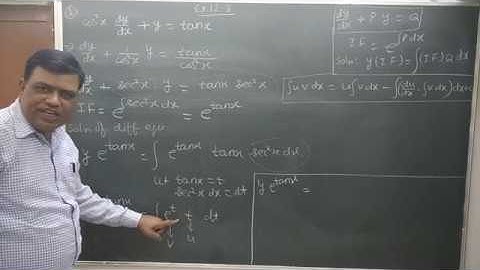 Ex 12.3
cos²x dy/dx + y = tanx
dy/dx + 1/cos²x y = tanx/cos²x
dy/dx + sec²x y = tanx sec²x
I F = e^∫sec²x dx = e^tanx
Soln of diff eqn
y e^tanx = ∫ e^tanx tanx sec²x dx
Let tanx = t
sec²x dx = dt
tanx
∫ e^t t dt
v u
dy/dx + P y = Q
I F = e^∫Pdx
Soln: y(IF) = ∫(IF) Q dx
∫u v dx = u∫v dx - ∫(du/dx ∫v dx)dx+c
y e^tanx =